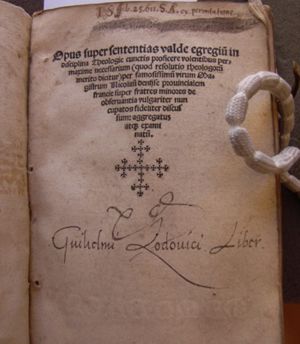 Opus super sententias valde egregiū in
disciplina Theologie cunctis proficere volentibus per
maxime necessarium (quod resolutio theologorū
merito dicitur) per famosissimū virum Ma
gistrum Nicolaū denisse provincialem
francie super fratres minores de
observantia vulgariter nun
cupatos fideliter discus
sum: aggregatus
atq; exami
natū.
Guilielmi Lodovici Liber.